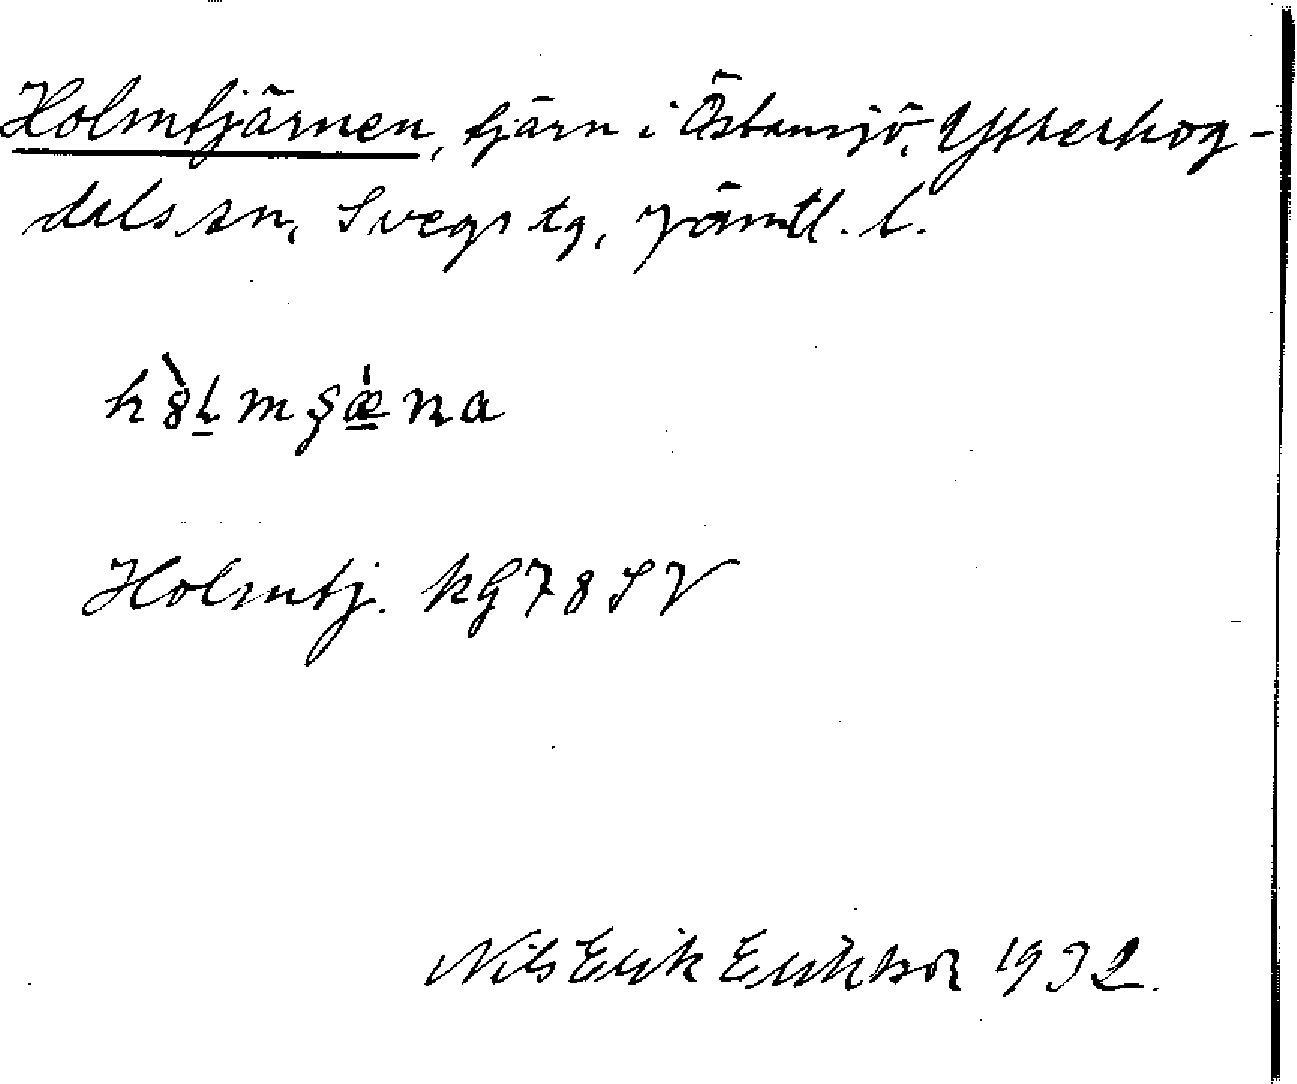 Holmtjärnen, tjärn i Östansjö, Ytterhog-
dals sn, Svegs tg, Jämtl. l.
Holmtj. kG78SV
Nils Erik Eriksson 1932.